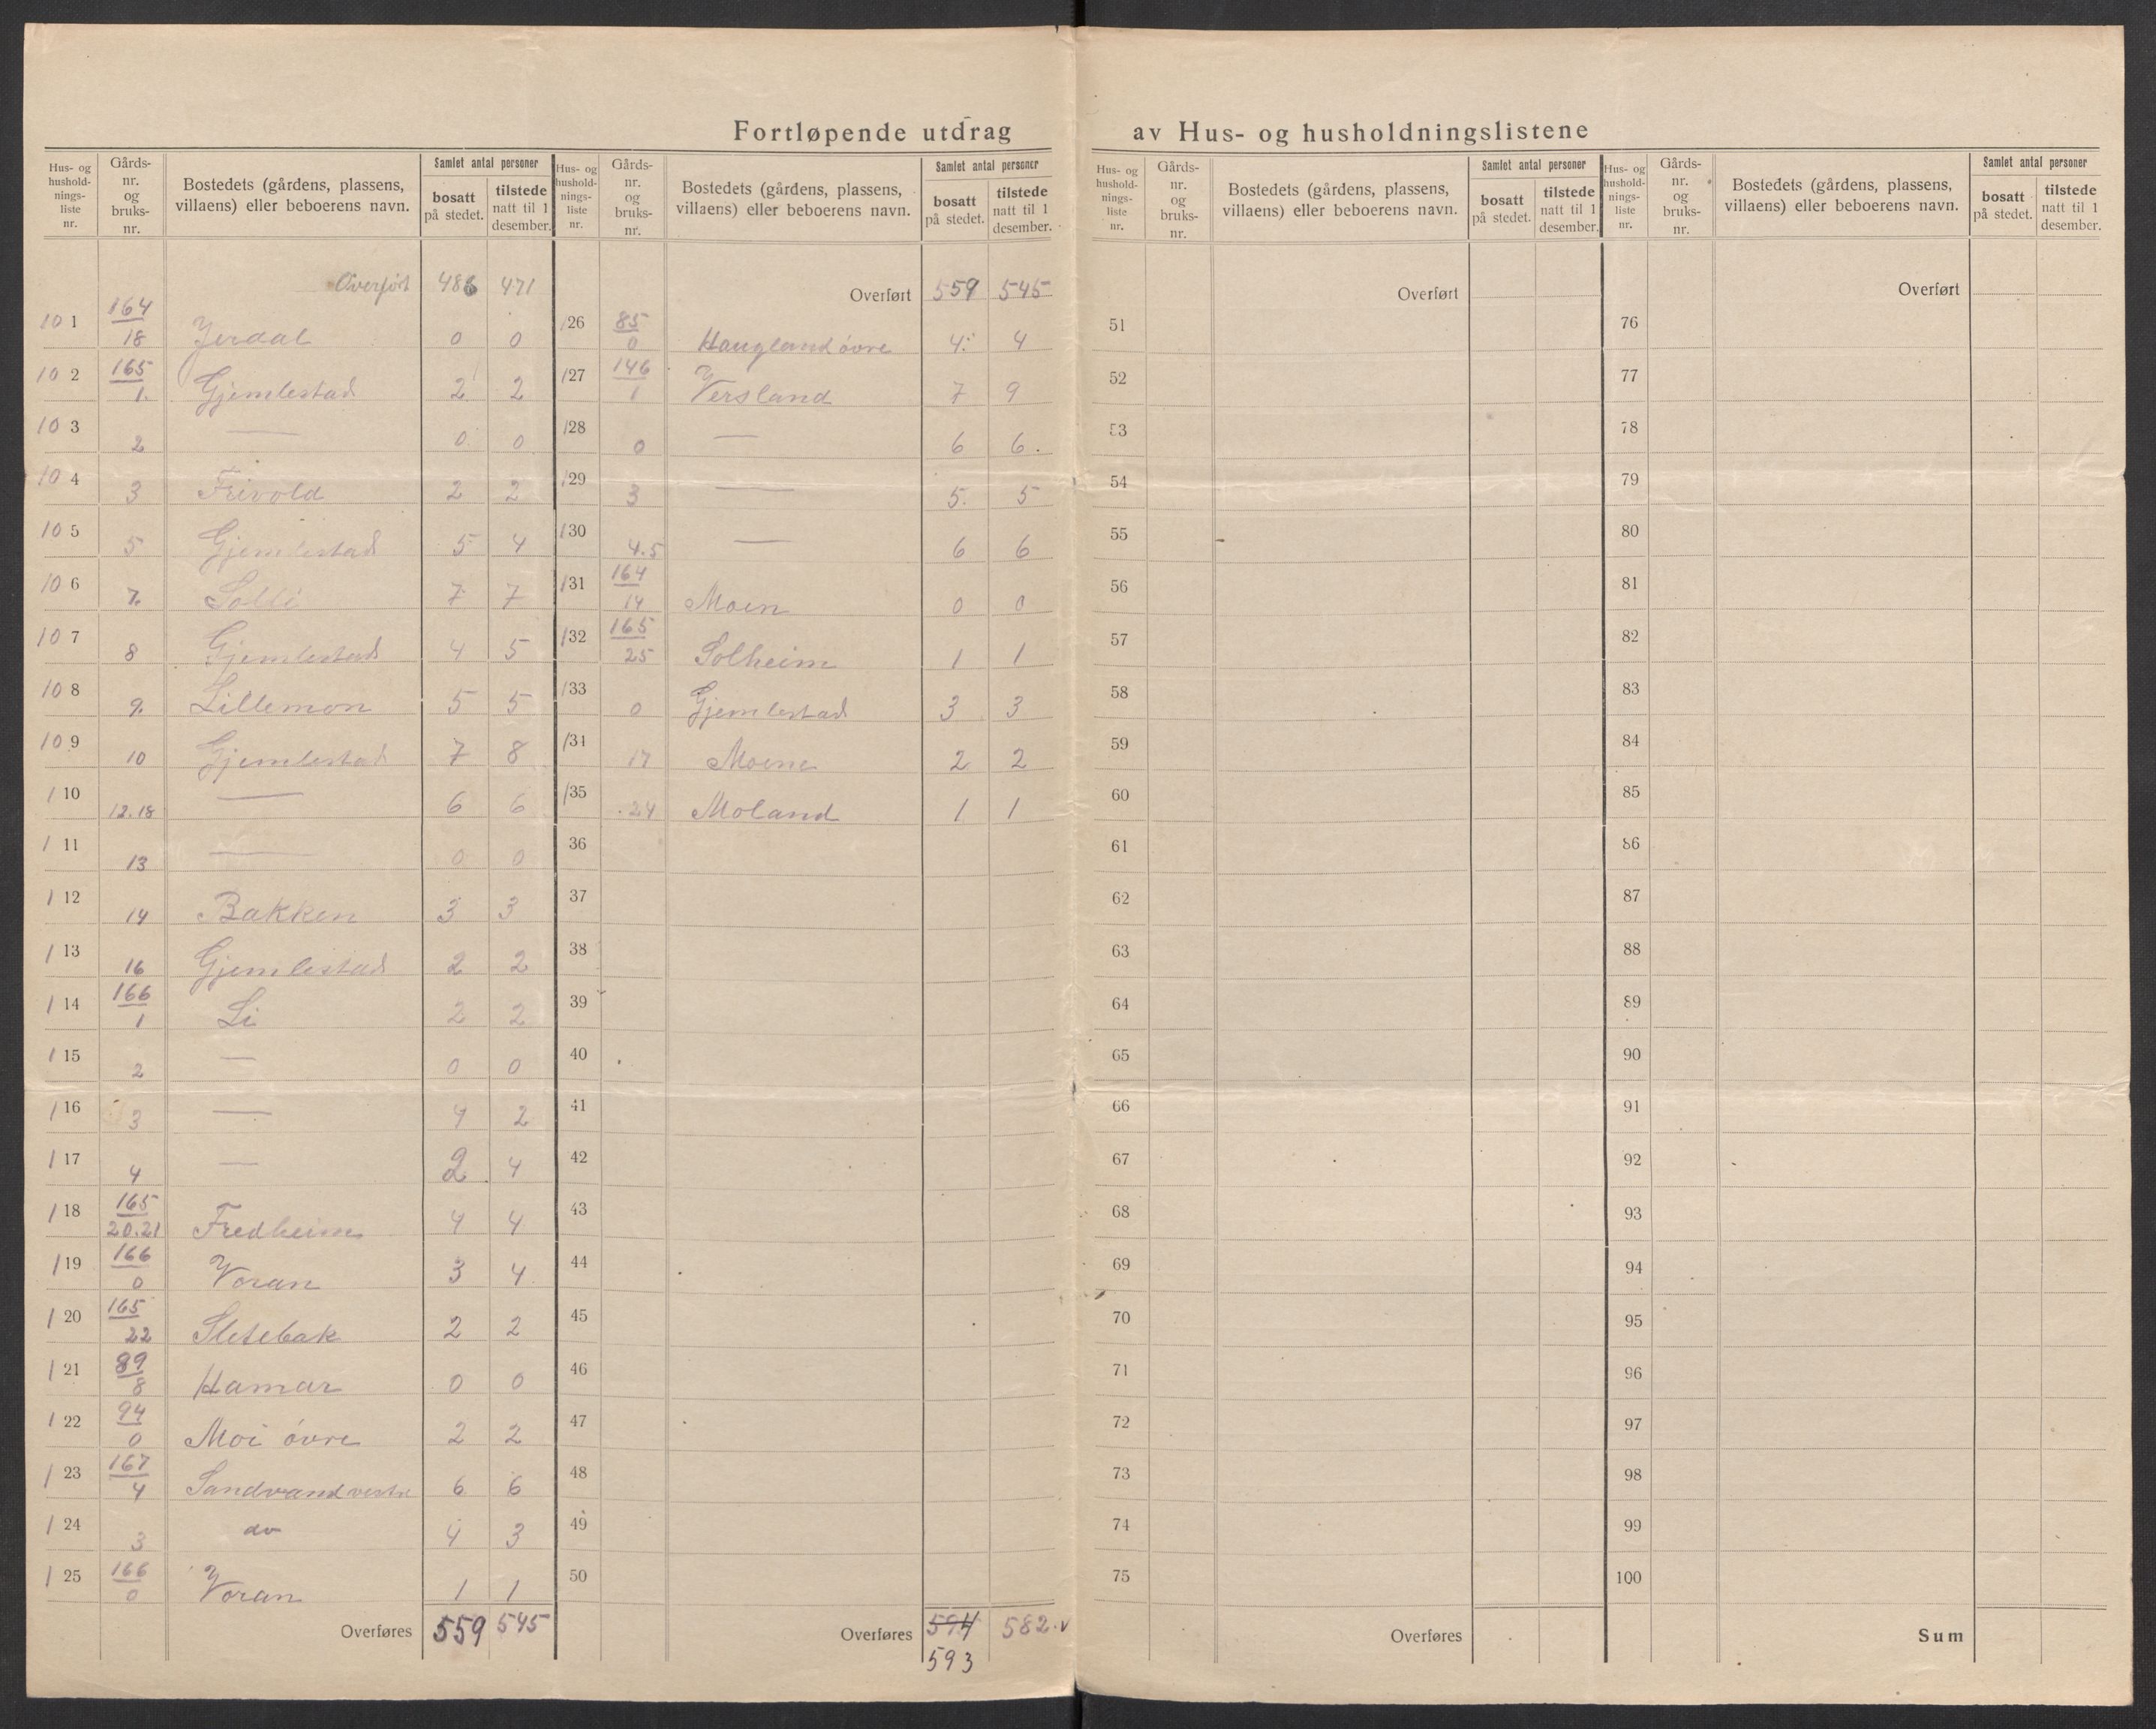 Fortløpende utdrag av Hus- og husholdningslistene
Hus- og hushold-nings-liste nr. | Gårds-nr. og bruks-nr. | Bostedets (gårdens, plassens, villaens) eller beboerens navn. | Samlet antal personer | bosatt på stedet. | tilstede natt til 1 desember.
Overført 486 471
101 164/18 Jerdal 0 0
102 165/1. Gjemlestad 2 2
103 2 — 0 0
104 3 Frivold 2 2
105 5 Gjemlestad 5 4
106 7. Solli 7 7
107 8 Gjemlestad 4 5
108 9. Lillemon 5 5
109 10 Gjemlestad 7 8
110 12.18 — 6 6
111 13 — 0 0
112 14 Bakken 3 3
113 16 Gjemlestad 2 2
114 166/1 Li 2 2
115 2 — 0 0
116 3 — 4 2
117 4 — 2 4
118 165/20.21 Fredheim 4 4
119 166/0 Voran 3 4
120 165/22 Sletebak 2 2
121 89/8 Hamar 0 0
122 94/0 Moi óvre 2 2
123 167/4 Sandvand vestre 6 6
124 3 do 4 3
125 166/0 Voran 1 1
Overføres 559 545
Hus- og hushold-nings-liste nr. | Gårds-nr. og bruks-nr. | Bostedets (gårdens, plassens, villaens) eller beboerens navn. | Samlet antal personer | bosatt på stedet. | tilstede natt til 1 desember.
Overført 559 545
126 85/0 Haugland óvre 4 4
127 146/1 Versland 7 9
128 0 — 6 6.
129 3 — 5. 5
130 4.5 — 6 6
131 164/14 Moen 0 0
132 165/25 Solheim 1 1
133 0 Gjemlestad 3 3
134 17 Moene 2 2
135 24 Moland 1 1
36
37
38
39
40
41
42
43
44
45
46
47
48
49
50
Overføres 594 582 v
593
Hus- og hushold-nings-liste nr. | Gårds-nr. og bruks-nr. | Bostedets (gårdens, plassens, villaens) eller beboerens navn. | Samlet antal personer | bosatt på stedet. | tilstede natt til 1 desember.
Overført
51
52
53
54
55
56
57
58
59
60
61
62
63
64
65
66
67
68
69
70
71
72
73
74
75
Overføres
Hus- og hushold-nings-liste nr. | Gårds-nr. og bruks-nr. | Bostedets (gårdens, plassens, villaens) eller beboerens navn. | Samlet antal personer | bosatt på stedet. | tilstede natt til 1 desember.
Overført
76
77
78
79
80
81
82
83
84
85
86
87
88
89
90
91
92
93
94
95
96
97
98
99
100
Sum